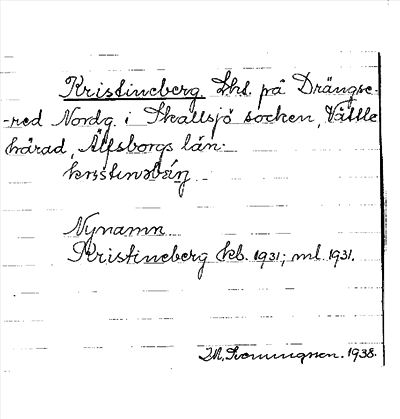 Kristineberg. Lht. på Drängse-
-red Nordg. i Skallsjö socken, Vättle
härad, Älfsborgs län.
Nynamn
Kristineberg kb. 1931; ml. 1931.
1938.